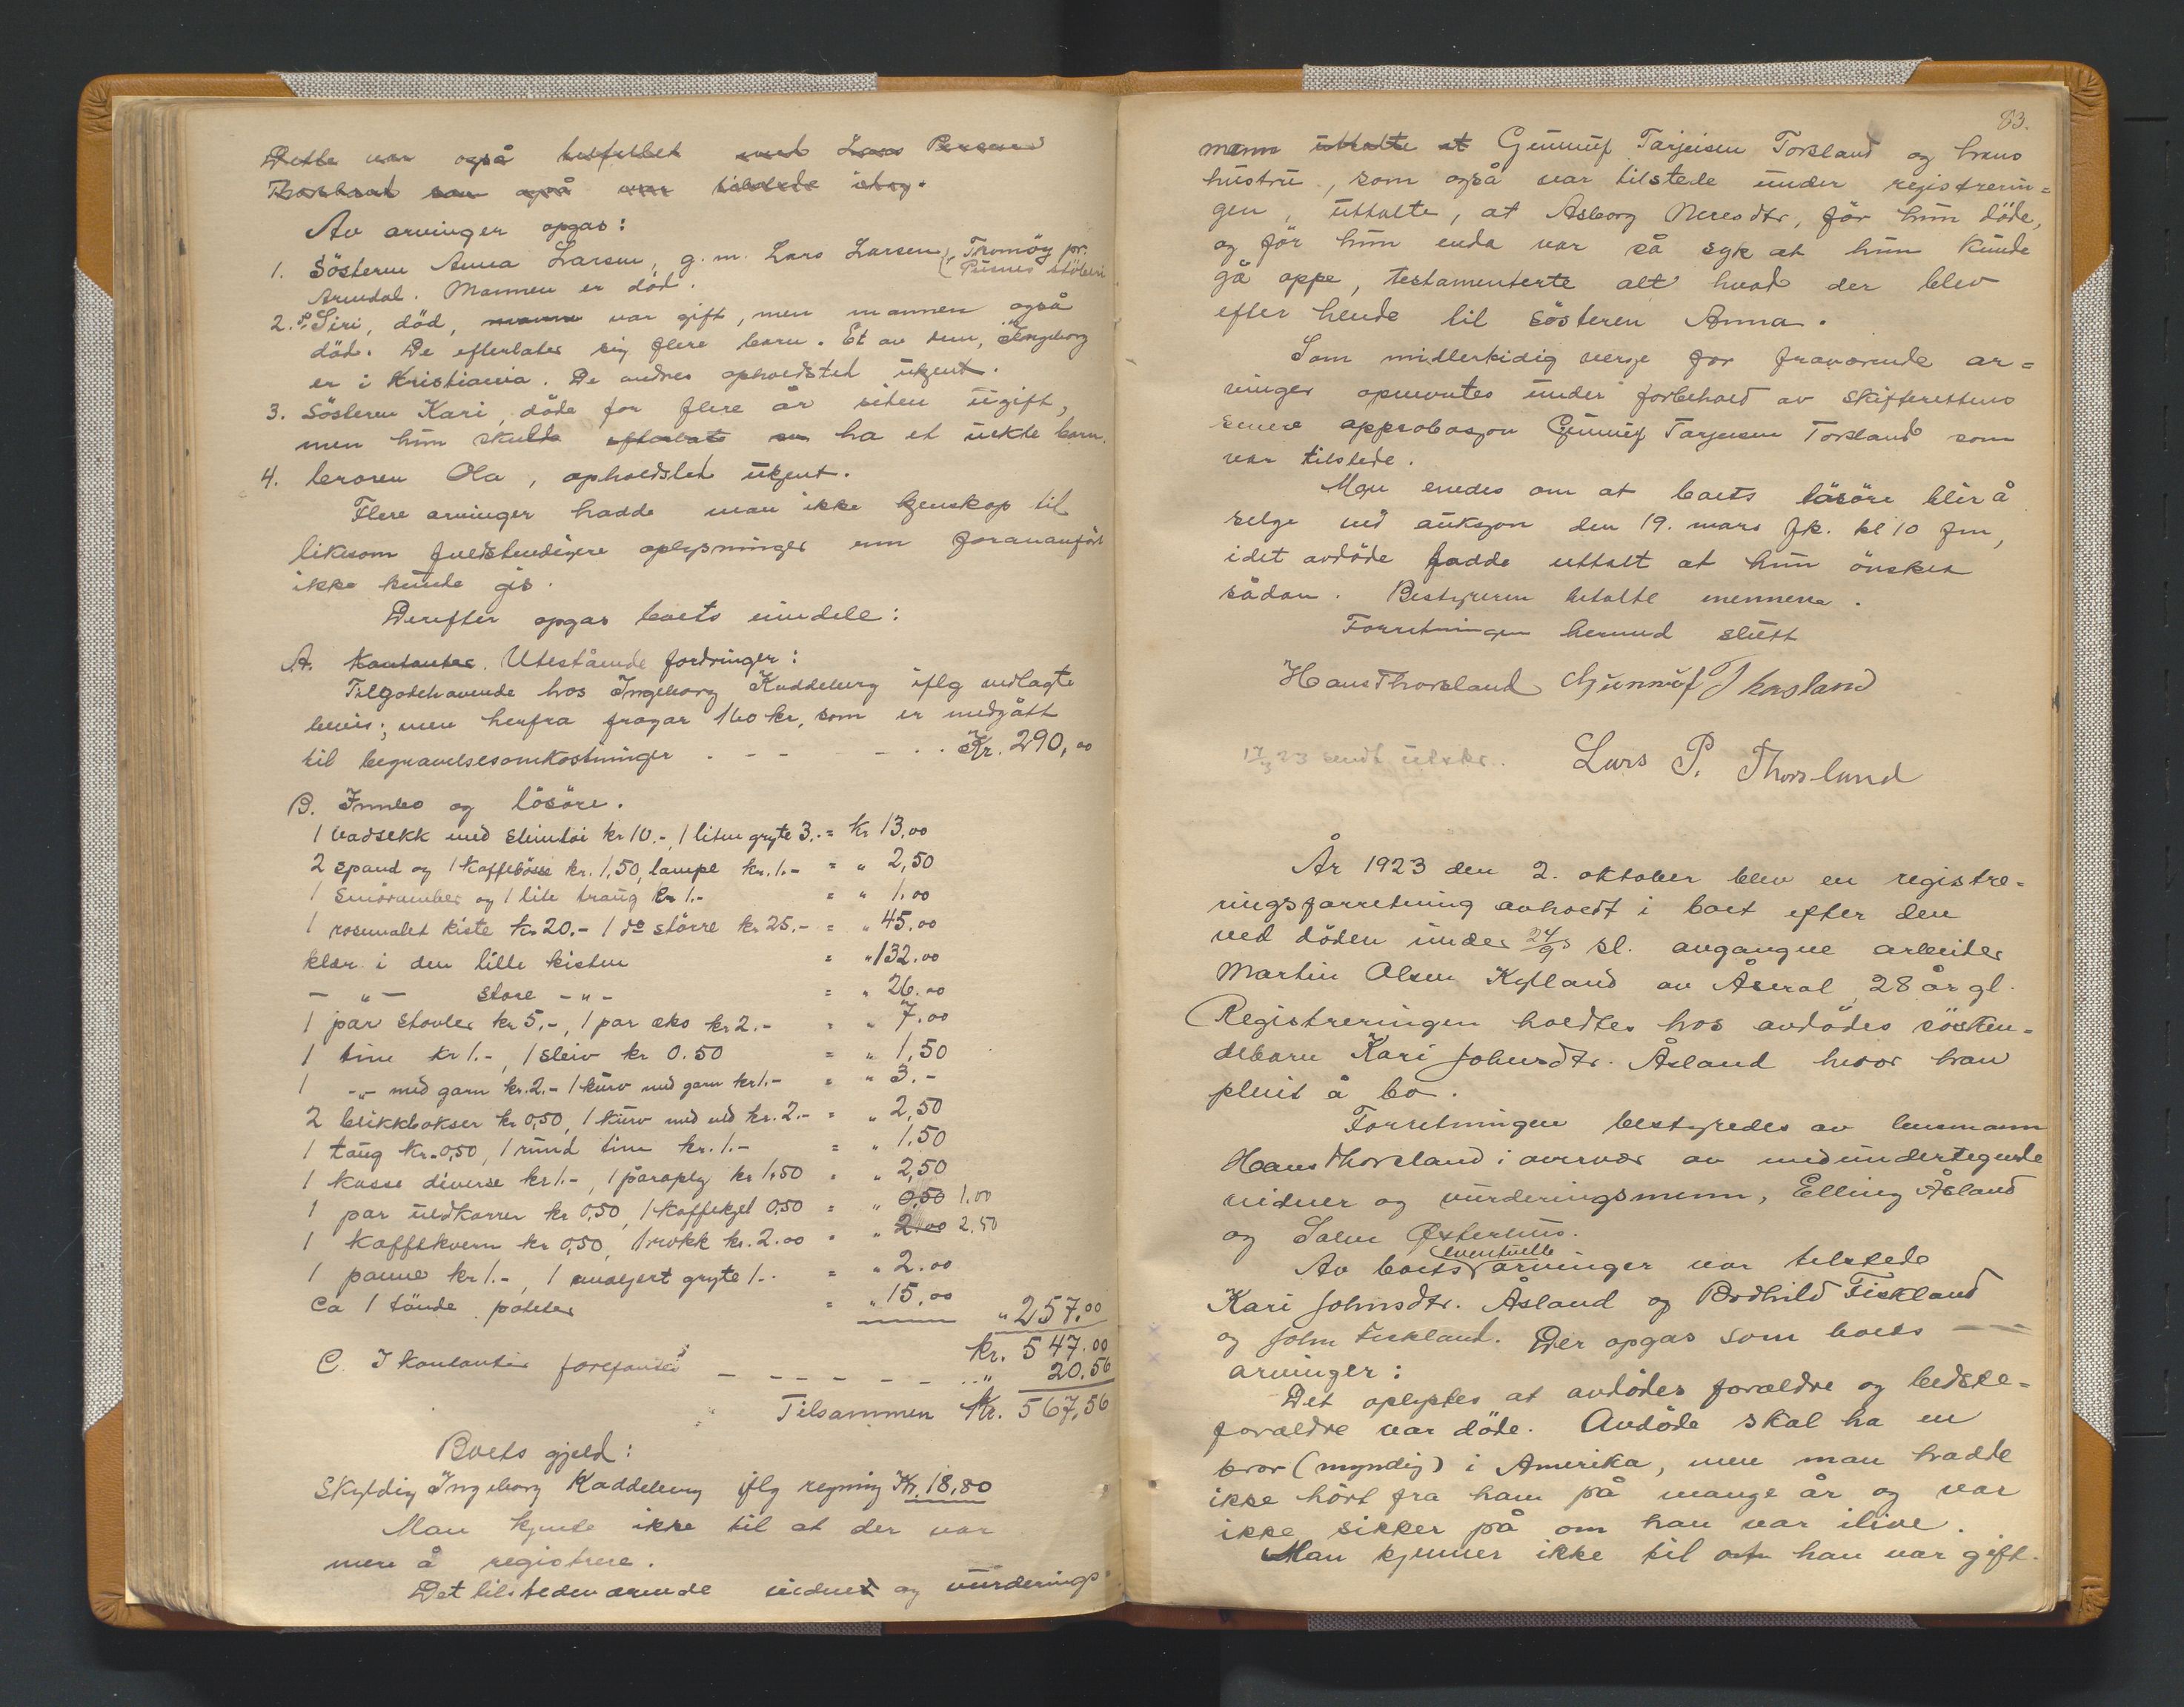 Dette var også tilfellet med Lars Persen
Thorsland som også var tilstede idag.
Av arvinger opgas:
1. Søsteren Anna Larsen, g. m. Lars Larsen, Tromöy pr.
Arendal. Mannen er död.
2. Siri, död, mann var gift, men mannen også
död. De efterlater sig flere barn. Et av dem, Ingeborg
er i Kristiania. De andres opholdsted ukjent.
3. Søsteren Kari, döde for flere år siden ugift,
men hun skulde efterlate ha et uekte barn.
4. broren Ola, opholdsted ukjent.
Flere arvinger hadde man ikke kjenskap til
likesom fuldstendigere oplysninger enn forananfört
ikke kunde gis.
Derefter opgas boets eiendele:
A. Kontanter. Utestående fordringer:
Tilgodehavende hos Ingeborg Kaddeberg iflg vedlagte
bevis; men herfra fragar 160 kr, som er medgått
til begravelsesomkostninger - - - . . Kr. 290,00
B. Innbo og lösöre.
1 vadsekk med stentöi kr 10.-, 1 liten gryte 3.- = kr 13,00
2 spand og 1 kaffebösse kr. 1,50, lampe kr. 1.- = " 2,50
1 Smöramber og 1 lite traug kr 1.- = " 1.00
1 rosemalet kiste kr 20.- 1 do större kr 25.- = " 45,00
klær i den lille kisten = " 132.00
- " - store - " - = " 26.00
1 par stövler kr 5.-, 1 par sko kr 2.- = " 7.00
1 tine kr 1.-, 1 sleiv kr 0.50 = " 1,50
1 -"- med garn kr. 2.- 1 kurv med garn kr 1.- = " 3.-
2 blikkbokser kr 0,50, 1 kurv med uld kr. 2.- = " 2,50
1 taug kr. 0,50, 1 rund tine kr. 1.- = " 1.50
1 kasse diverse kr 1.-, 1 paraply kr 1,50 = " 2,50
1 par uldkarrer kr 0,50, 1 kaffekjel 0,50 = " 0,50 1.00
1 kaffekvern kr 0,50, 1 rokk kr. 2.00 = " 2.00 2.50
1 panne kr 1.-, 1 emaljert gryte 1.- = " 2.00
Ca 1 tönde poteter = " 15,00 " 257.00
kr. 547.00
C. I kontanter forefandtes - - - - - - .. " 20.56
Tilsammen Kr. 567,56
Boets gjeld:
Skyldig Ingeborg Kaddeberg iflg regning Kr. 18,80
Man kjente ikke til at der var
mere å registrere.
Det tilstedeværende vidner og vurderings-
83.
menn uttalte at Gunnuf Tarjeisen Torsland og hans
hustru, som også var tilstede under registrerin=
gen, uttalte, at Asborg Neresdtr, för hun döde,
og för hun enda var så syk at hun kunde
gå oppe, testamenterte alt hvad der blev
efter hende til Søsteren Anna.
Som midlertidig verge for fraværende ar=
vinger opnevntes under forbehold av skifterettens
senere approbasjon Gunnuf Tarjeisen Torsland som
var tilstede.
Man enedes om at boets lösöre blir å
selge ved auksjon den 19. mars fk. kl 10 fm,
idet avdöde hadde uttalt at hun önsket
sådan. Bestyreren betalte mennene.
Forretningen hermed slutt
Hans Thorsland Gunnuf Thorsland
17/3 23 sendt utskr. Lars P. Thorsland
År 1923 den 2. oktober blev en registre=
ringsforretning avholdt i boet efter den
ved döden under 24/9 sl. avgangne arbeider
Martin Olsen Kylland av Åseral, 28 år gl.
Registreringen holdtes hos avdödes søsken=
debarn Kari Johnsdtr. Åsland hvor han
pleiet å bo.
Forretningen bestyredes av lensmann
Hans Thorsland i overvær av medundertegnede
vidner og vurderingsmenn, Elling Åsland
og Salve Østerhus.
Av boets eventuelle arvinger var tilstede
Kari Johnsdtr. Åsland og Bodhild Fiskland
og John Fiskland. Der opgas som boets
arvinger:
Det oplystes at avdödes forældre og bedste=
forældre var döde. Avdöde skal ha en
bror (myndig) i Amerika, men man hadde
ikke hört fra ham på mange år og var
ikke sikker på om han var ilive.
Man kjenner ikke til at han var gift.